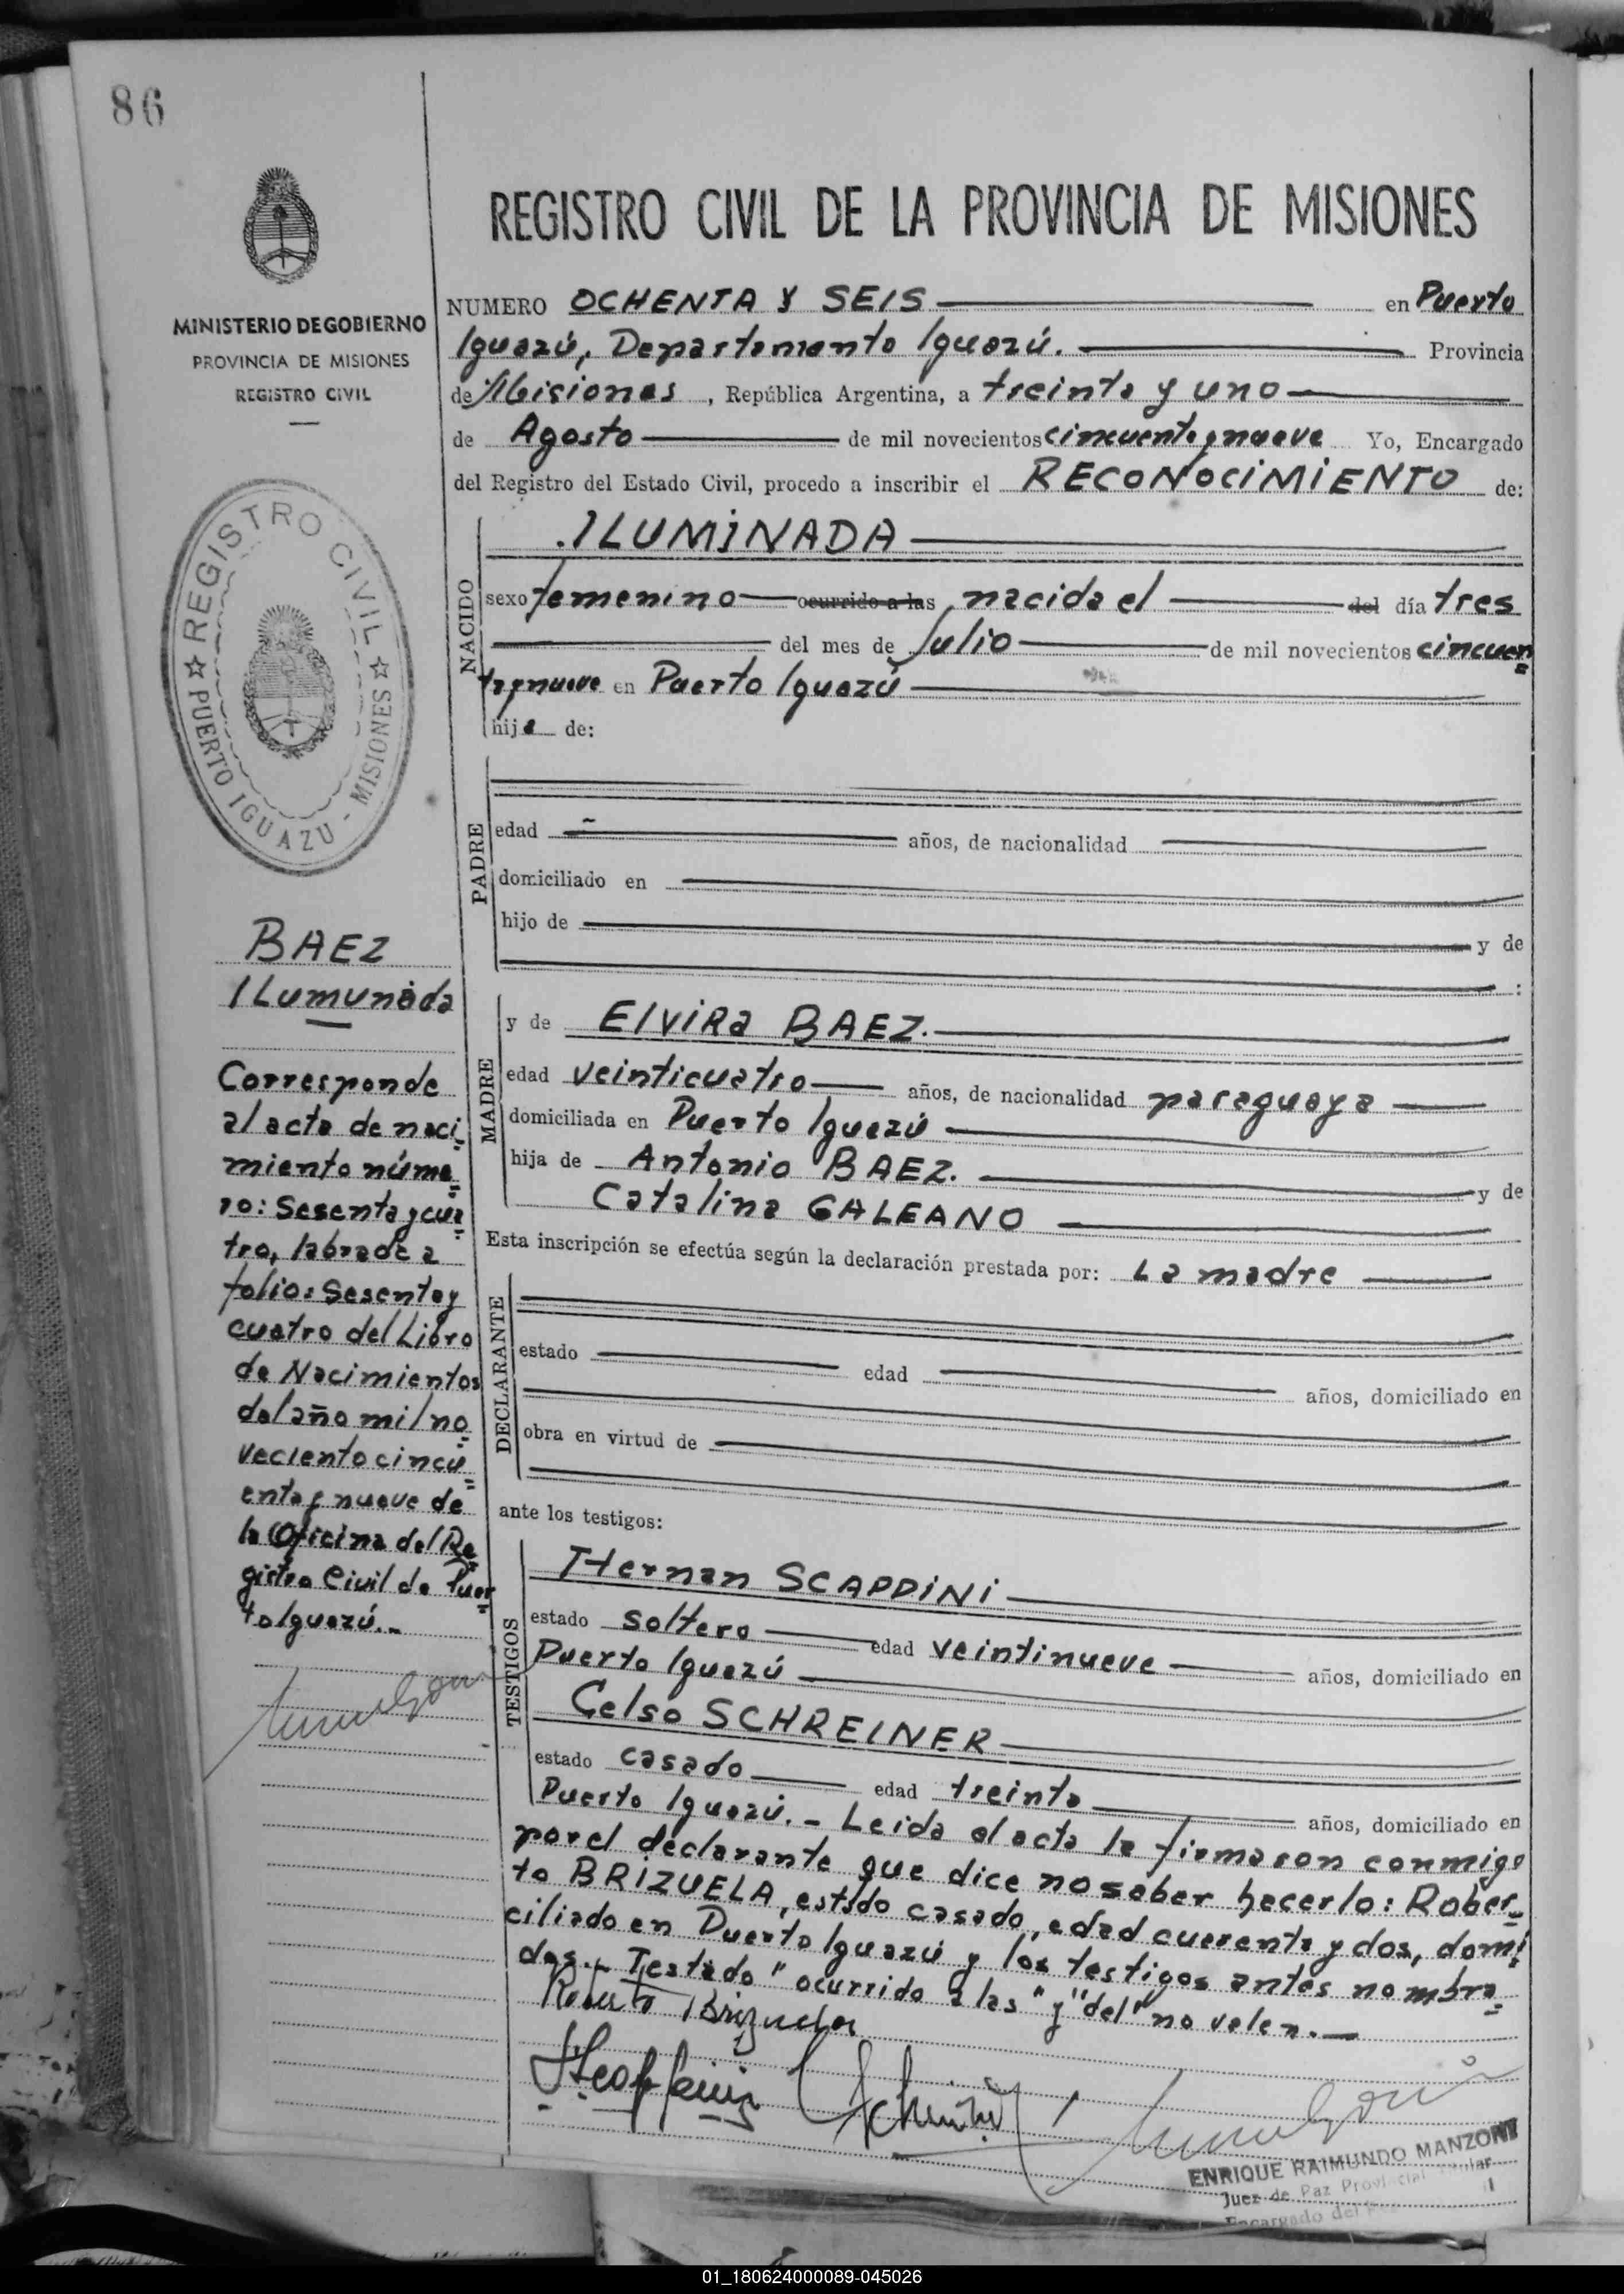 86
MINISTERIO DE GOBIERNO
PROVINCIA DE MISIONES
REGISTRO CIVIL
REGISTRO CIVIL
PUERTO IGUAZU - MISIONES
BAEZ
ILumunada
Corresponde
al acta de naci
miento núme
ro: Sesenta y cua
tro, labrada a
folio: Sesenta y
cuatro del Libro
de Nacimientos
del año mil no
veciento cincu
enta y nueve de
la Oficina del Re
gistro Civil de Puer
to Iguazú.-
REGISTRO CIVIL DE LA PROVINCIA DE MISIONES
NUMERO OCHENTA Y SEIS en Puerto
Iguazú, Departamento Iguazú. Provincia
de Misiones, República Argentina, a treinta y uno
de Agosto de mil novecientos cincuenta y nueve Yo, Encargado
del Registro del Estado Civil, procedo a inscribir el RECONOCIMIENTO de:
NACIDO
ILUMINADA
sexo femenino ocurrido a las nacida el del día tres
del mes de Julio de mil novecientos cincuen
ta y nueve en Puerto Iguazú
hija de:
PADRE
edad años, de nacionalidad
domiciliado en
hijo de y de
:
MADRE
y de Elvira BAEZ.
edad veinticuatro años, de nacionalidad paraguaya
domiciliada en Puerto Iguazú
hija de Antonio BAEZ. y de
Catalina GALEANO
Esta inscripción se efectúa según la declaración prestada por: La madre
DECLARANTE
estado edad años, domiciliado en
obra en virtud de
ante los testigos:
TESTIGOS
Hernan SCAPPINI
estado soltero edad veintinueve años, domiciliado en
Puerto Iguazú
Celso SCHREINER
estado casado edad treinta años, domiciliado en
Puerto Iguazú.- Leida el acta la firmaron conmigo
por el declarante que dice no saber hacerlo: Rober
to BRIZUELA, estado casado, edad cuarenta y dos, domi
ciliado en Puerto Iguazú y los testigos antes nombra
dos.- Testado "ocurrido a las" y "del" no valen.-
Roberto Brizuela
ENRIQUE RAIMUNDO MANZONI
Juez de Paz Provincial Titular
Encargado del
01_180624000089-045026